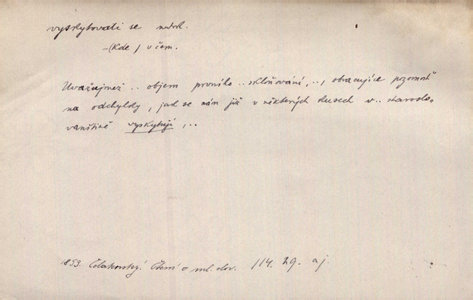 vyskytovati se nedok.
–(kde) v čem.
Uvažujmež .. objem prvního .. skloňování, .., obracujíce pozornosť
na odchylky, jež se nám již v některých kusech v .. staroslo-
vanštině vyskytují, ..
853 Čelakovský. Čtení o ml. slov. 114. 29. aj.